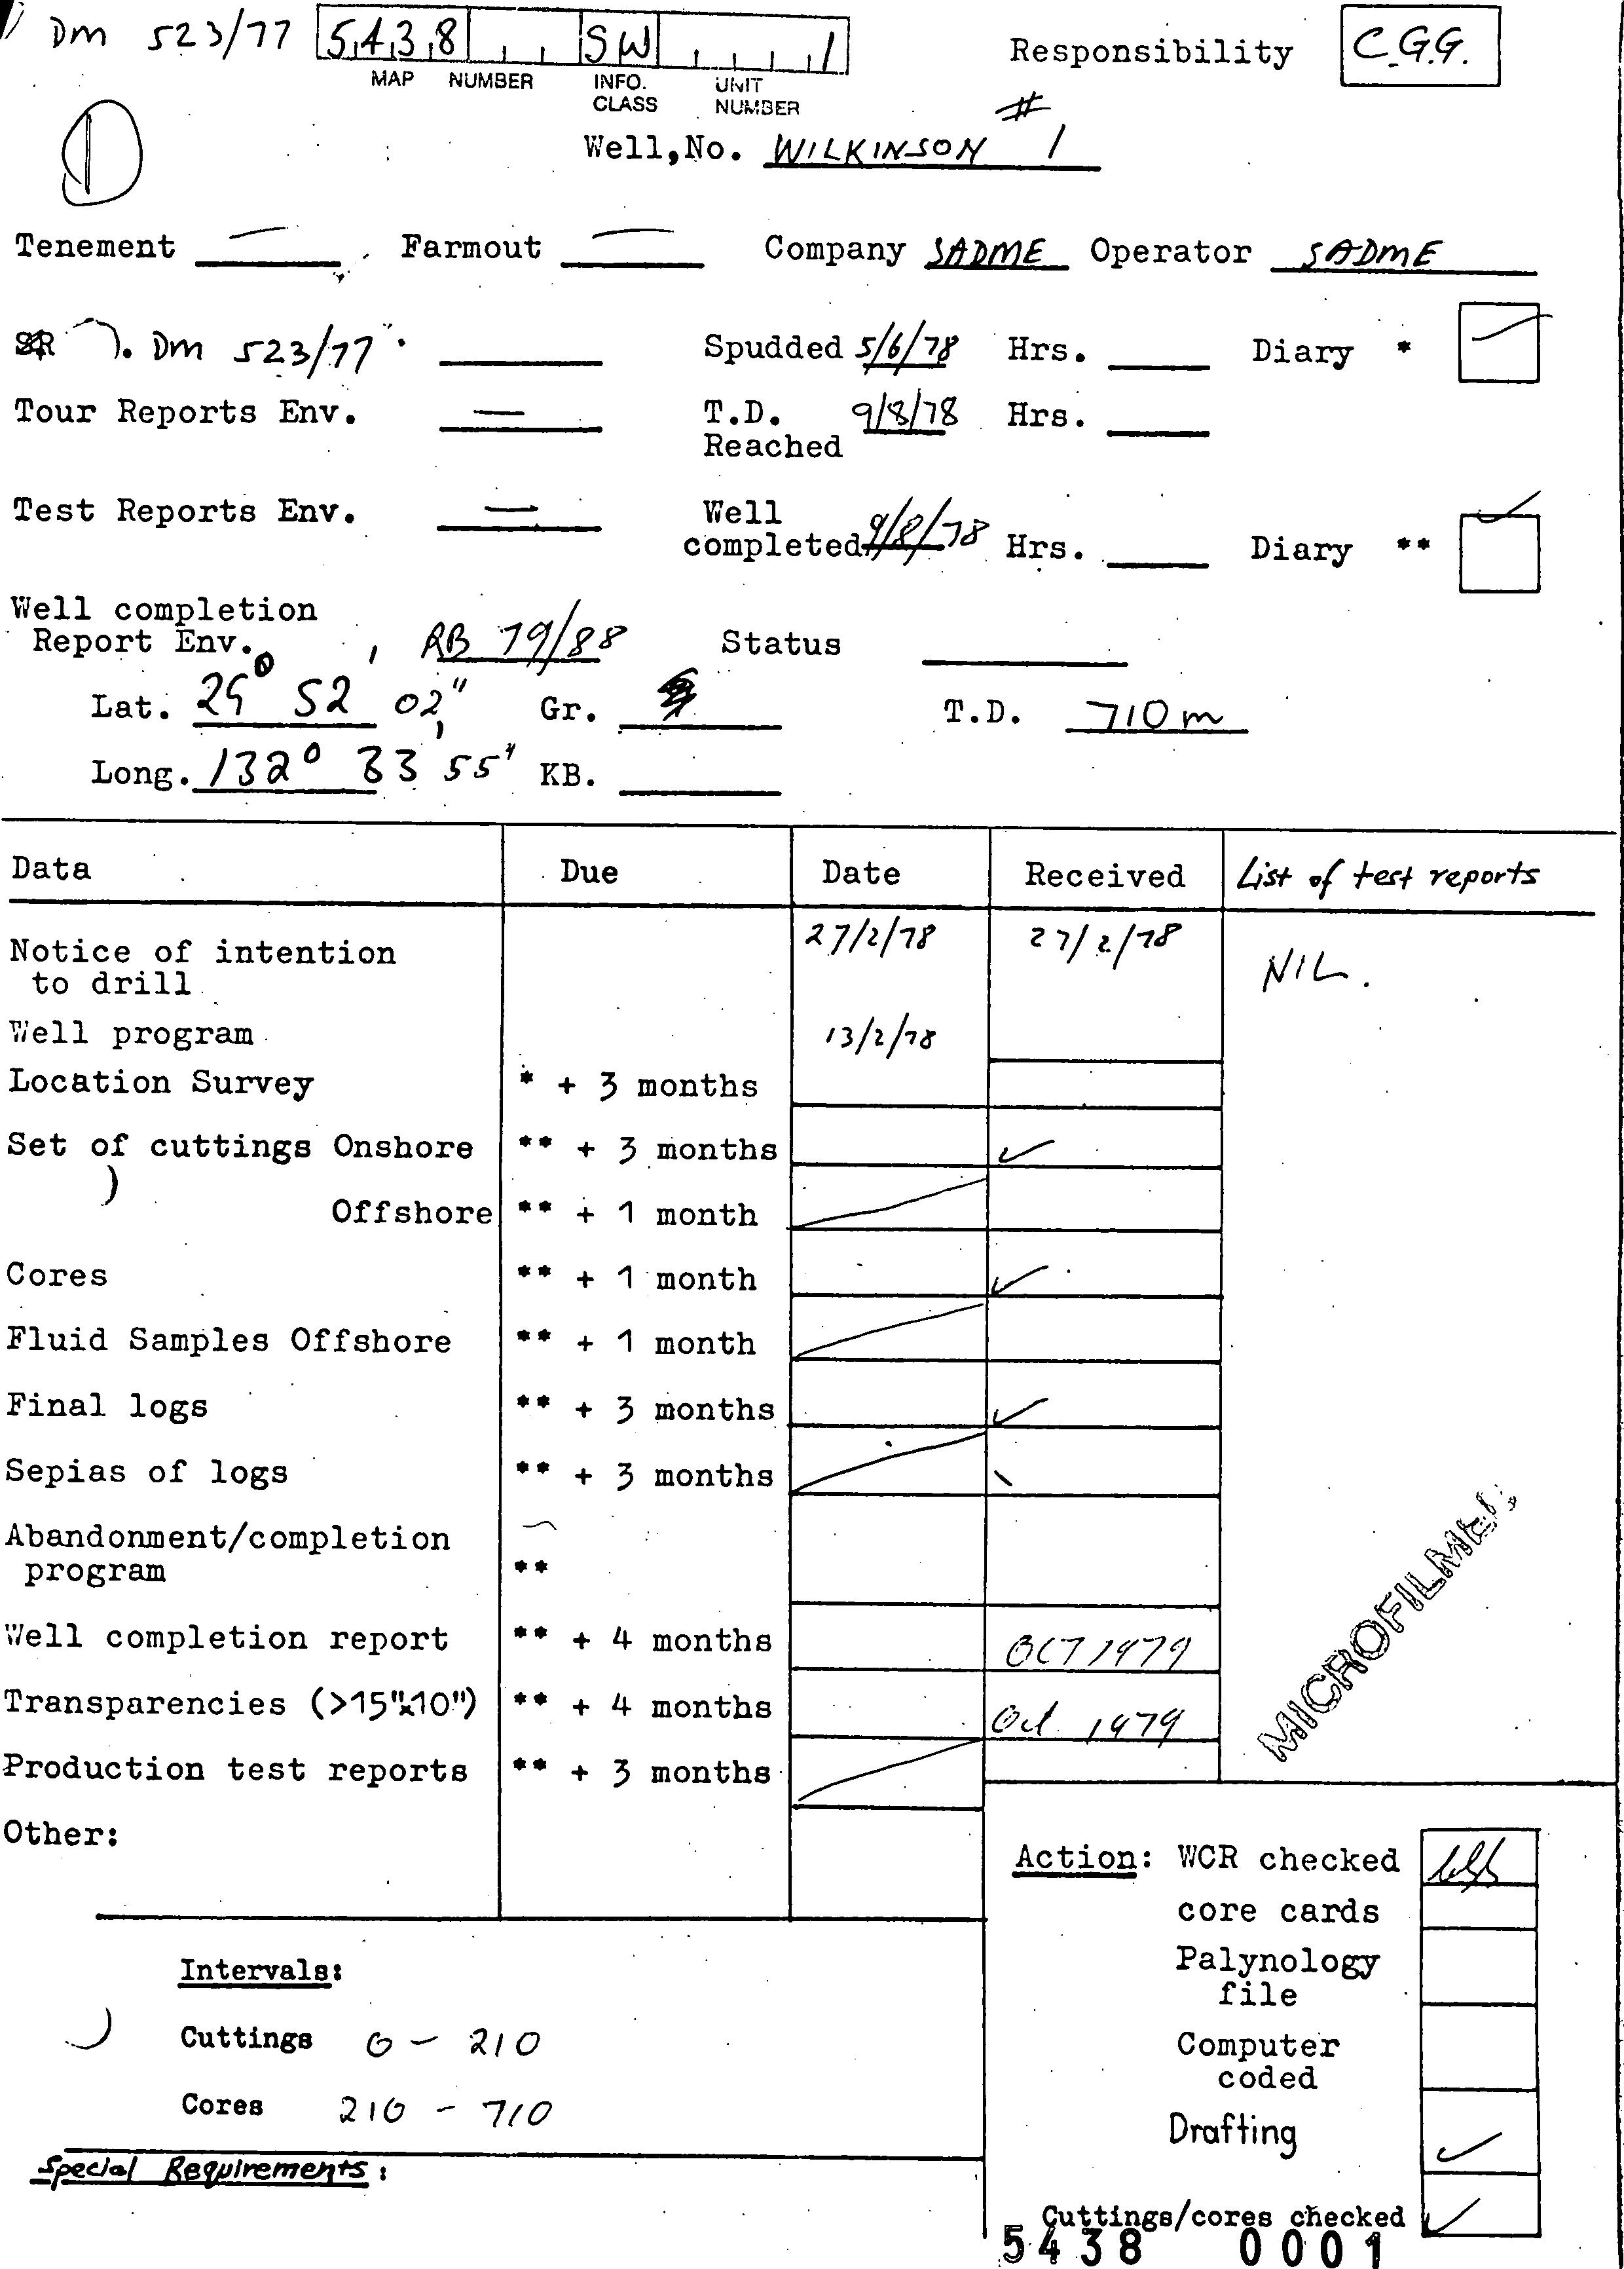 Dm 523/77 5438 SW 1 Responsibility C.G.G.
MAP NUMBER INFO. CLASS UNIT NUMBER
1
Well, No. WILKINSON # 1
Tenement — Farmout — Company SADME Operator SADME
SR Dm 523/77 Spudded 5/6/78 Hrs. Diary *
Tour Reports Env. — T.D. Reached 9/8/78 Hrs.
Test Reports Env. — Well completed 9/8/78 Hrs. Diary **
Well completion
Report Env. RB 79/88 Status
Lat. 29° 52' 02" Gr. T.D. 710m
Long. 132° 33' 55" KB.
Data Due Date Received List of test reports
Notice of intention to drill 27/2/78 27/2/78 NIL.
Well program 13/2/78
Location Survey * + 3 months
Set of cuttings Onshore ** + 3 months ✓
Offshore ** + 1 month
Cores ** + 1 month ✓
Fluid Samples Offshore ** + 1 month
Final logs ** + 3 months ✓
Sepias of logs ** + 3 months
Abandonment/completion
program **
Well completion report ** + 4 months OCT 1979
Transparencies (>15"x10") ** + 4 months Oct. 1979
Production test reports ** + 3 months
MICROFILMED
Other:
Action: WCR checked
core cards
Palynology
file
Computer
coded
Drafting ✓
Cuttings/cores checked ✓
Intervals:
Cuttings 0 - 210
Cores 210 - 710
Special Requirements:
5438 0001